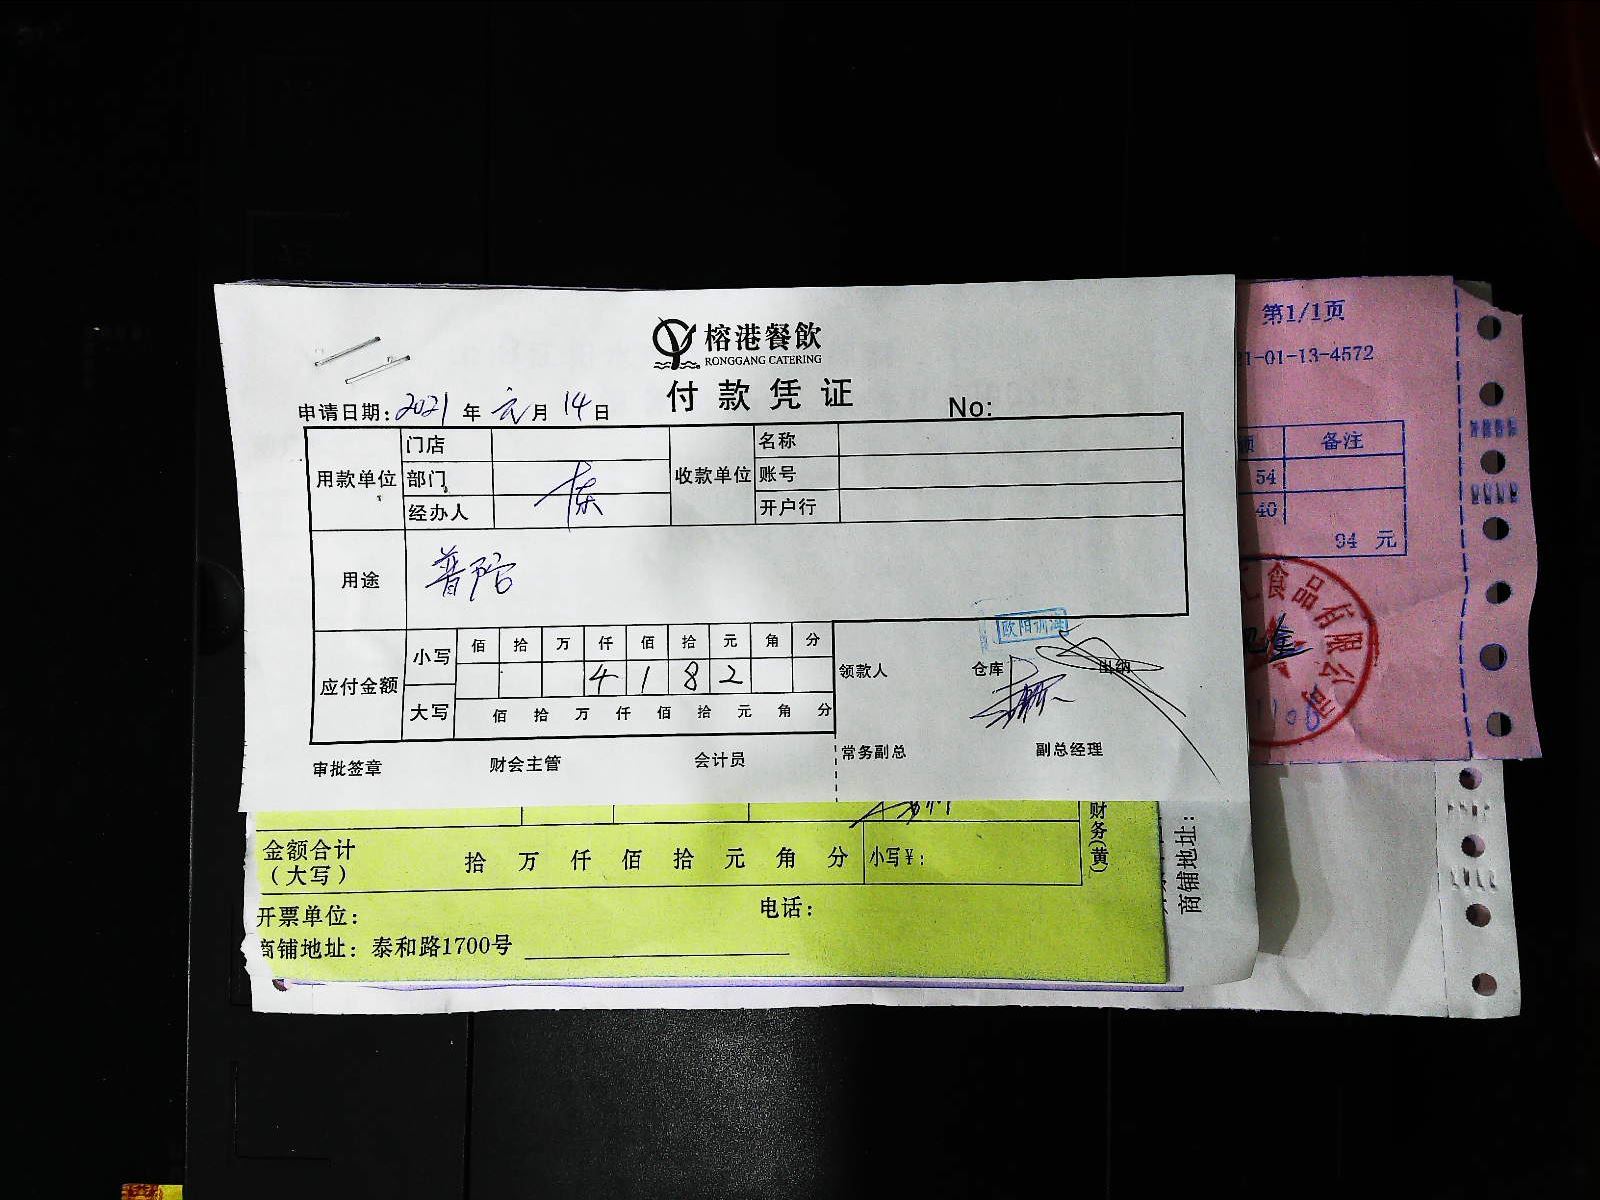 榕港餐飲
RONGGANG CATERING
付款凭证
申请日期：2021年元月14日 No:
用款单位 门店 收款单位 名称
部门 账号
经办人 开户行
用途 普陀
应付金额 小写 佰 拾 万 仟 佰 拾 元 角 分
4 1 8 2
大写 佰 拾 万 仟 佰 拾 元 角 分
领款人 仓库 出纳
审批签章 财会主管 会计员 常务副总 副总经理
第1/1页
1-01-13-4572
备注
54
40
94 元
食品有限公司
金额合计
（大写） 拾 万 仟 佰 拾 元 角 分 小写¥：
开票单位： 电话：
商铺地址：泰和路1700号
财务(黄)
商铺地址：